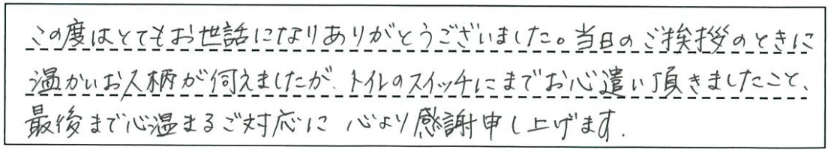 この度はとてもお世話になりありがとうございました。当日のご挨拶のときに
温かいお人柄が伺えましたが、トイレのスイッチにまでお心遣い頂きましたこと、
最後まで心温まるご対応に 心より感謝申し上げます.